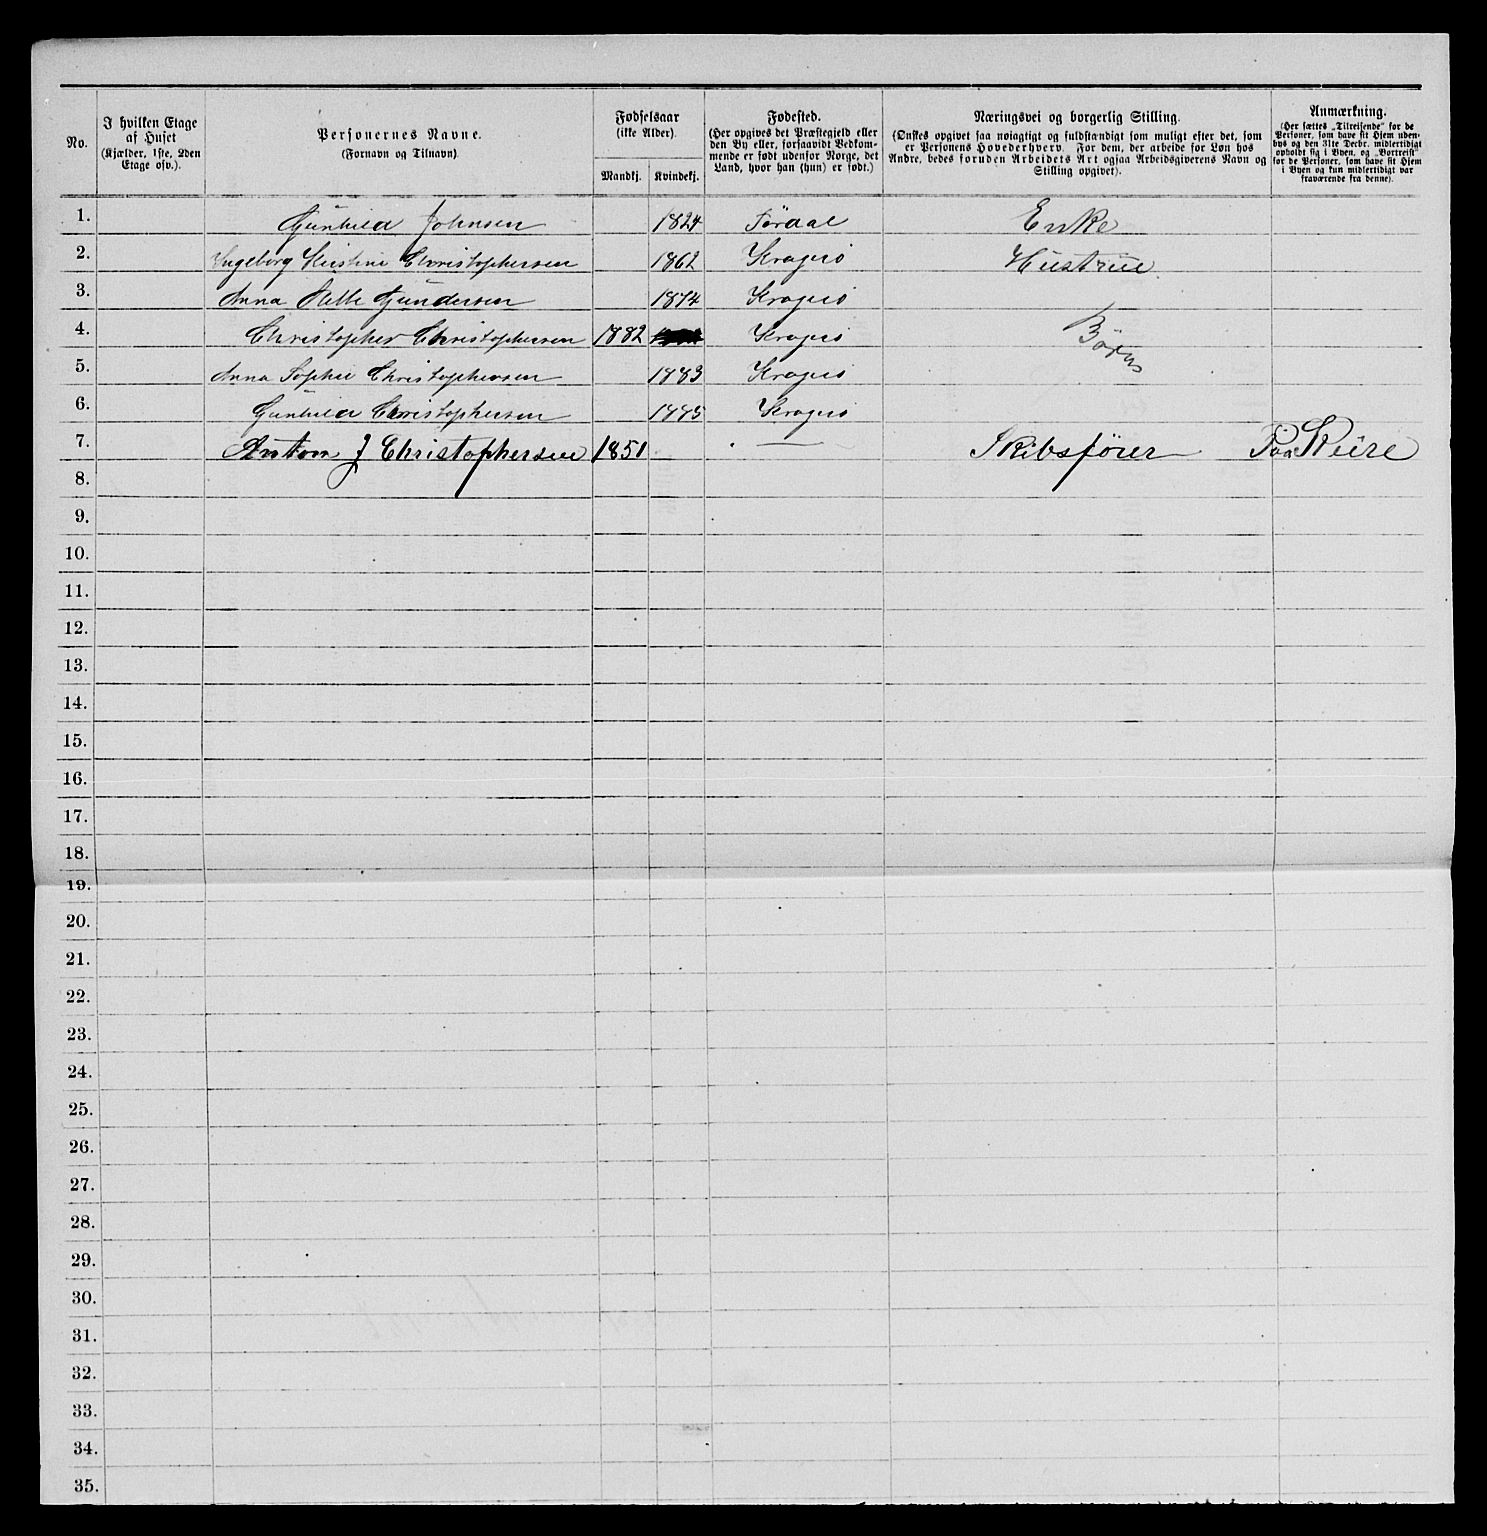 No.
I hvilken Etage af Huset (Kjælder, 1ste, 2den Etage osv.).
Personernes Navne. (Fornavn og Tilnavn)
Fødselsaar (ikke Alder).
Mandkj. Kvindekj.
Fødested. (Her opgives det Præstegjeld eller den By eller, forsaavidt Vedkommende er født udenfor Norge, det Land, hvor han (hun) er født.)
Næringsvei og borgerlig Stilling. (Ønskes opgivet saa nøiagtigt og fuldstændigt som muligt efter det, som er Personens Hovederhverv. For dem, der arbeide for Løn hos Andre, bedes foruden Arbeidets Art ogsaa Arbeidsgiverens Navn og Stilling opgivet).
Anmærkning. (Her sættes „Tilreisende“ for de Personer, som have sit Hjem udenbys og den 31te Decbr. midlertidigt opholdt sig i Byen, og „Bortreist“ for de Personer, som have sit Hjem i Byen og kun midlertidigt var fraværende fra denne).
1. Gunhild Johnsen 1824 Tørdal Enke
2. Ingeborg Kirstine Christophersen 1862 Kragerø Hustrue.
3. Anna Gundersen 1874 Kragerø
4. Christopher Christophersen 1882 Kragerø Børn
5. Anna Sophie Christophersen 1883 Kragerø
6. Gunhild Christophersen 1885 Kragerø
7. Anton J Christophersen 1851 — Skibsfører Paa Reise
8.
9.
10.
11.
12.
13.
14.
15.
16.
17.
18.
19.
20.
21.
22.
23.
24.
25.
26.
27.
28.
29.
30.
31.
32.
33.
34.
35.